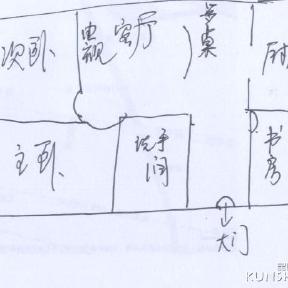 次卧
电视
客厅
桌
主卧
洗手间
书房
大门
KUNSH